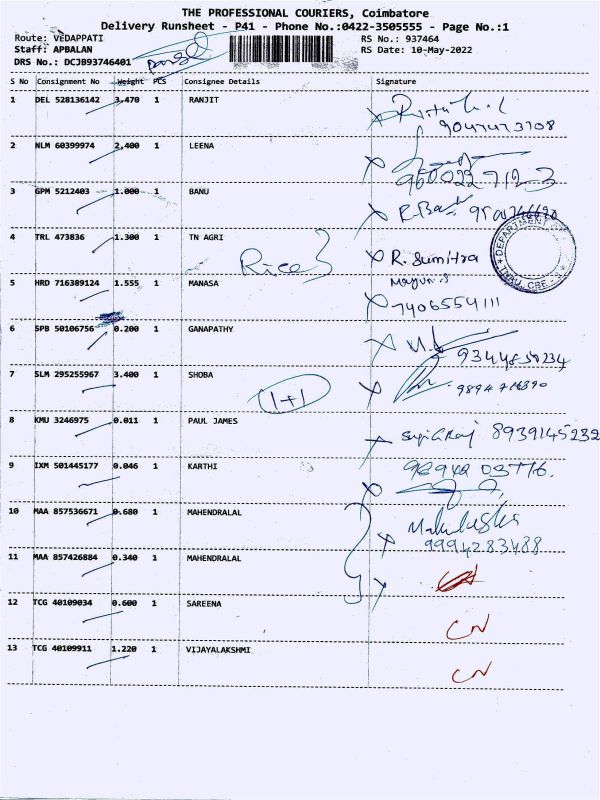 THE PROFESSIONAL COURIERS, Coimbatore
Delivery Runsheet - P41 - Phone No.:0422-3505555 - Page No.:1
Route: VEDAPPATI RS No.: 937464
Staff: APBALAN RS Date: 10-May-2022
DRS No.: DCJB93746401
S No Consignment No Weight PCS Consignee Details Signature
1 DEL 528136142 3.470 1 RANJIT
9047473708
2 NLM 60399974 2.400 1 LEENA
3 GPM 5212403 1.000 1 BANU R.Banu
4 TRL 473836 1.300 1 TN AGRI Rice 3 R. Sumitra
5 HRD 716389124 1.555 1 MANASA
7406554111
6 SPB 50106756 0.200 1 GANAPATHY
9344850234
7 SLM 295255967 3.400 1 SHOBA
(1+1)
8 KMU 3246975 0.011 1 PAUL JAMES 8939145232
9 IXM 501445177 0.046 1 KARTHI
10 MAA 857536671 0.680 1 MAHENDRALAL
9994283488
11 MAA 857426884 0.340 1 MAHENDRALAL
12 TCG 40109034 0.600 1 SAREENA CN
13 TCG 40109911 1.220 1 VIJAYALAKSHMI CN
DEPARTMENT
CBE